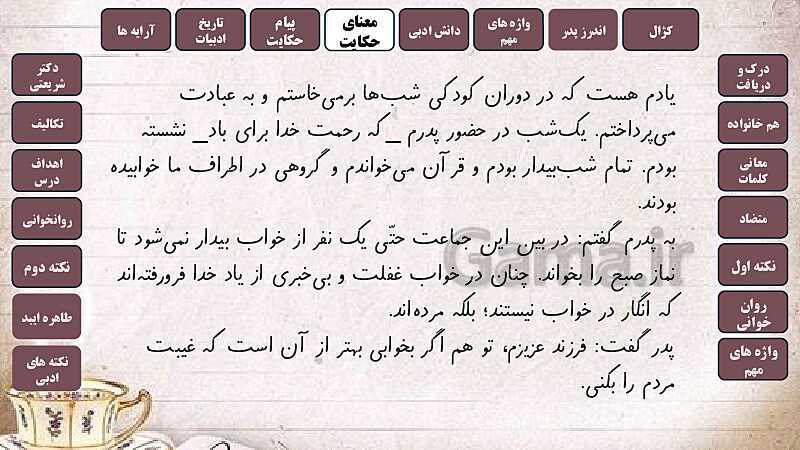 کژال
اندرز پدر
واژه های مهم
دانش ادبی
معنای حکایت
پیام حکایت
تاریخ ادبیات
آرایه ها
درک و دریافت
هم خانواده
معانی کلمات
متضاد
نکته اول
روان خوانی
واژه های مهم
یادم هست که در دوران کودکی شب‌ها برمی‌خاستم و به عبادت
می‌پرداختم. یک‌شب در حضور پدرم _ که رحمت خدا برای باد_ نشسته
بودم. تمام شب‌بیدار بودم و قرآن می‌خواندم و گروهی در اطراف ما خوابیده
بودند.
به پدرم گفتم: در بین این جماعت حتّی یک نفر از خواب بیدار نمی‌شود تا
نماز صبح را بخواند. چنان در خواب غفلت و بی‌خبری از یاد خدا فرورفته‌اند
که انگار در خواب نیستند؛ بلکه مرده‌اند.
پدر گفت: فرزند عزیزم، تو هم اگر بخوابی بهتر از آن است که غیبت
مردم را بکنی.
Gama.ir
دکتر شریعتی
تکالیف
اهداف درس
روانخوانی
نکته دوم
طاهره ایبد
نکته های ادبی